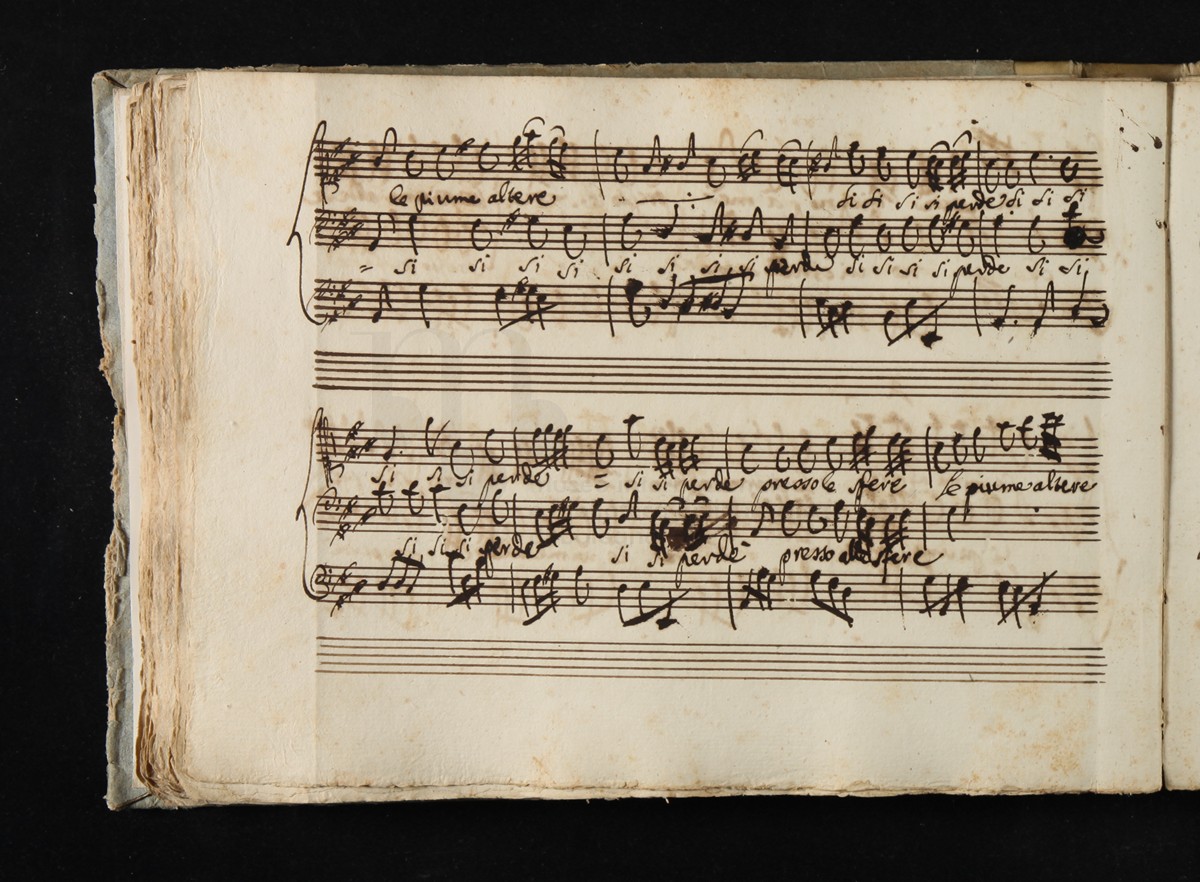 le piume altere si si si si perde si si si
= si si si si si si si si perde si si si si perde si si
si si si perde = si si perde presso le sfere le piume altere
si si si perde si si perde presso alle sfere